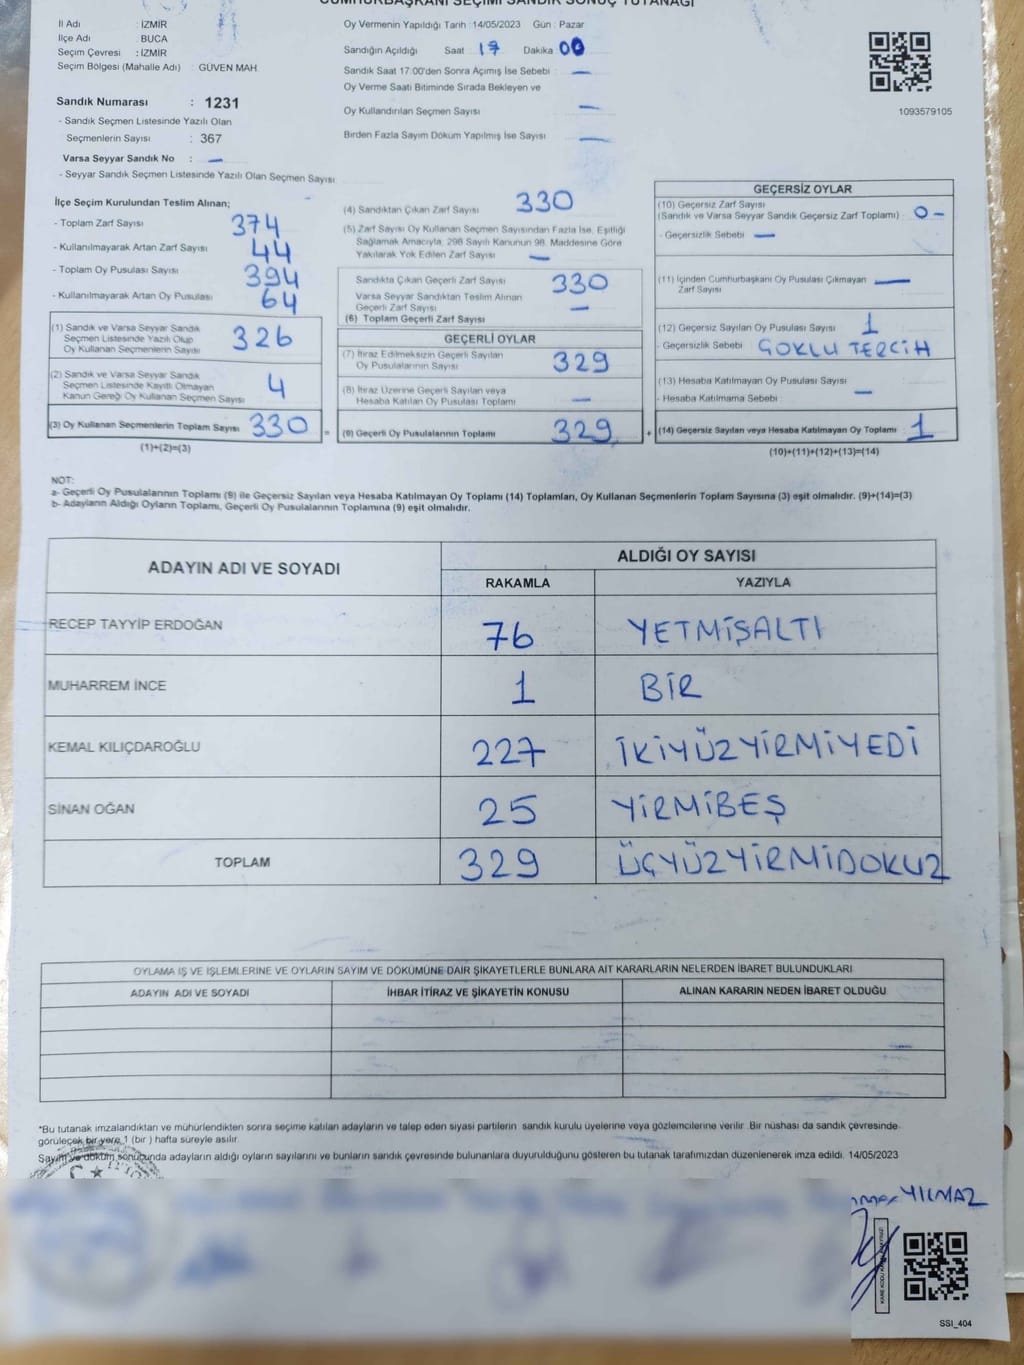 CUMHURBAŞKANI SEÇİMİ SANDIK SONUÇ TUTANAĞI
İl Adı : İZMİR
İlçe Adı : BUCA
Seçim Çevresi : İZMİR
Seçim Bölgesi (Mahalle Adı) : GÜVEN MAH.
Sandık Numarası : 1231
- Sandık Seçmen Listesinde Yazılı Olan
Seçmenlerin Sayısı : 367
Varsa Seyyar Sandık No : —
- Seyyar Sandık Seçmen Listesinde Yazılı Olan Seçmen Sayısı
Oy Vermenin Yapıldığı Tarih : 14/05/2023 Gün : Pazar
Sandığın Açıldığı Saat 17 Dakika 00
Sandık Saat 17:00'den Sonra Açımış İse Sebebi —
Oy Verme Saati Bitiminde Sırada Bekleyen ve
Oy Kullandırılan Seçmen Sayısı —
Birden Fazla Sayım Döküm Yapılmış İse Sayısı —
1093579105
İlçe Seçim Kurulundan Teslim Alınan; -
- Toplam Zarf Sayısı 374
- Kullanılmayarak Artan Zarf Sayısı 44
- Toplam Oy Pusulası Sayısı 394
- Kullanılmayarak Artan Oy Pusulası 64
(1) Sandık ve Varsa Seyyar Sandık
Seçmen Listesinde Yazılı Olup
Oy Kullanan Seçmenlerin Sayısı 326
(2) Sandık ve Varsa Seyyar Sandık
Seçmen Listesinde Kayıtlı Olmayan
Kanun Gereği Oy Kullanan Seçmen Sayısı 4
(3) Oy Kullanan Seçmenlerin Toplam Sayısı 330 =
(1)+(2)=(3)
(4) Sandıktan Çıkan Zarf Sayısı 330
(5) Zarf Sayısı Oy Kullanan Seçmen Sayısından Fazla İse, Eşitliği
Sağlamak Amacıyla, 298 Sayılı Kanunun 98. Maddesine Göre
Yakılarak Yok Edilen Zarf Sayısı —
Sandıkta Çıkan Geçerli Zarf Sayısı 330
Varsa Seyyar Sandıktan Teslim Alınan
Geçerli Zarf Sayısı —
(6) Toplam Geçerli Zarf Sayısı
GEÇERLİ OYLAR
(7) İtiraz Edilmeksizin Geçerli Sayılan
Oy Pusulalarının Sayısı 329
(8) İtiraz Üzerine Geçerli Sayılan veya
Hesaba Katılan Oy Pusulası Toplamı —
(9) Geçerli Oy Pusulalarının Toplamı 329 +
GEÇERSİZ OYLAR
(10) Geçersiz Zarf Sayısı
(Sandık ve Varsa Seyyar Sandık Geçersiz Zarf Toplamı) 0 -
- Geçersizlik Sebebi —
(11) İçinden Cumhurbaşkanı Oy Pusulası Çıkmayan
Zarf Sayısı —
(12) Geçersiz Sayılan Oy Pusulası Sayısı 1
- Geçersizlik Sebebi ÇOKLU TERCİH
(13) Hesaba Katılmayan Oy Pusulası Sayısı
- Hesaba Katılmama Sebebi —
(14) Geçersiz Sayılan veya Hesaba Katılmayan Oy Toplamı 1
(10)+(11)+(12)+(13)=(14)
NOT:
a- Geçerli Oy Pusulalarının Toplamı (9) ile Geçersiz Sayılan veya Hesaba Katılmayan Oy Toplamı (14) Toplamları, Oy Kullanan Seçmenlerin Toplam Sayısına (3) eşit olmalıdır. (9)+(14)=(3)
b- Adayların Aldığı Oyların Toplamı, Geçerli Oy Pusulalarının Toplamına (9) eşit olmalıdır.
ADAYIN ADI VE SOYADI ALDIĞI OY SAYISI
RAKAMLA YAZIYLA
RECEP TAYYİP ERDOĞAN 76 YETMİŞALTI
MUHARREM İNCE 1 BİR
KEMAL KILIÇDAROĞLU 227 İKİYÜZYİRMİYEDİ
SİNAN OĞAN 25 YİRMİBEŞ
TOPLAM 329 ÜÇYÜZYİRMİDOKUZ
OYLAMA İŞ VE İŞLEMLERİNE VE OYLARIN SAYIM VE DÖKÜMÜNE DAİR ŞİKAYETLERLE BUNLARA AİT KARARLARIN NELERDEN İBARET BULUNDUKLARI
ADAYIN ADI VE SOYADI İHBAR İTİRAZ VE ŞİKAYETİN KONUSU ALINAN KARARIN NEDEN İBARET OLDUĞU
*Bu tutanak imzalandıktan ve mühürlendikten sonra seçime katılan adayların ve talep eden siyasi partilerin sandık kurulu üyelerine veya gözlemcilerine verilir. Bir nüshası da sandık çevresinde
görülecek bir yere 1 (bir ) hafta süreyle asılır.
Sayım ve döküm sonucunda adayların aldığı oyların sayılarını ve bunların sandık çevresinde bulunanlara duyurulduğunu gösteren bu tutanak tarafımızdan düzenlenerek imza edildi. 14/05/2023
YILMAZ
SSI_404